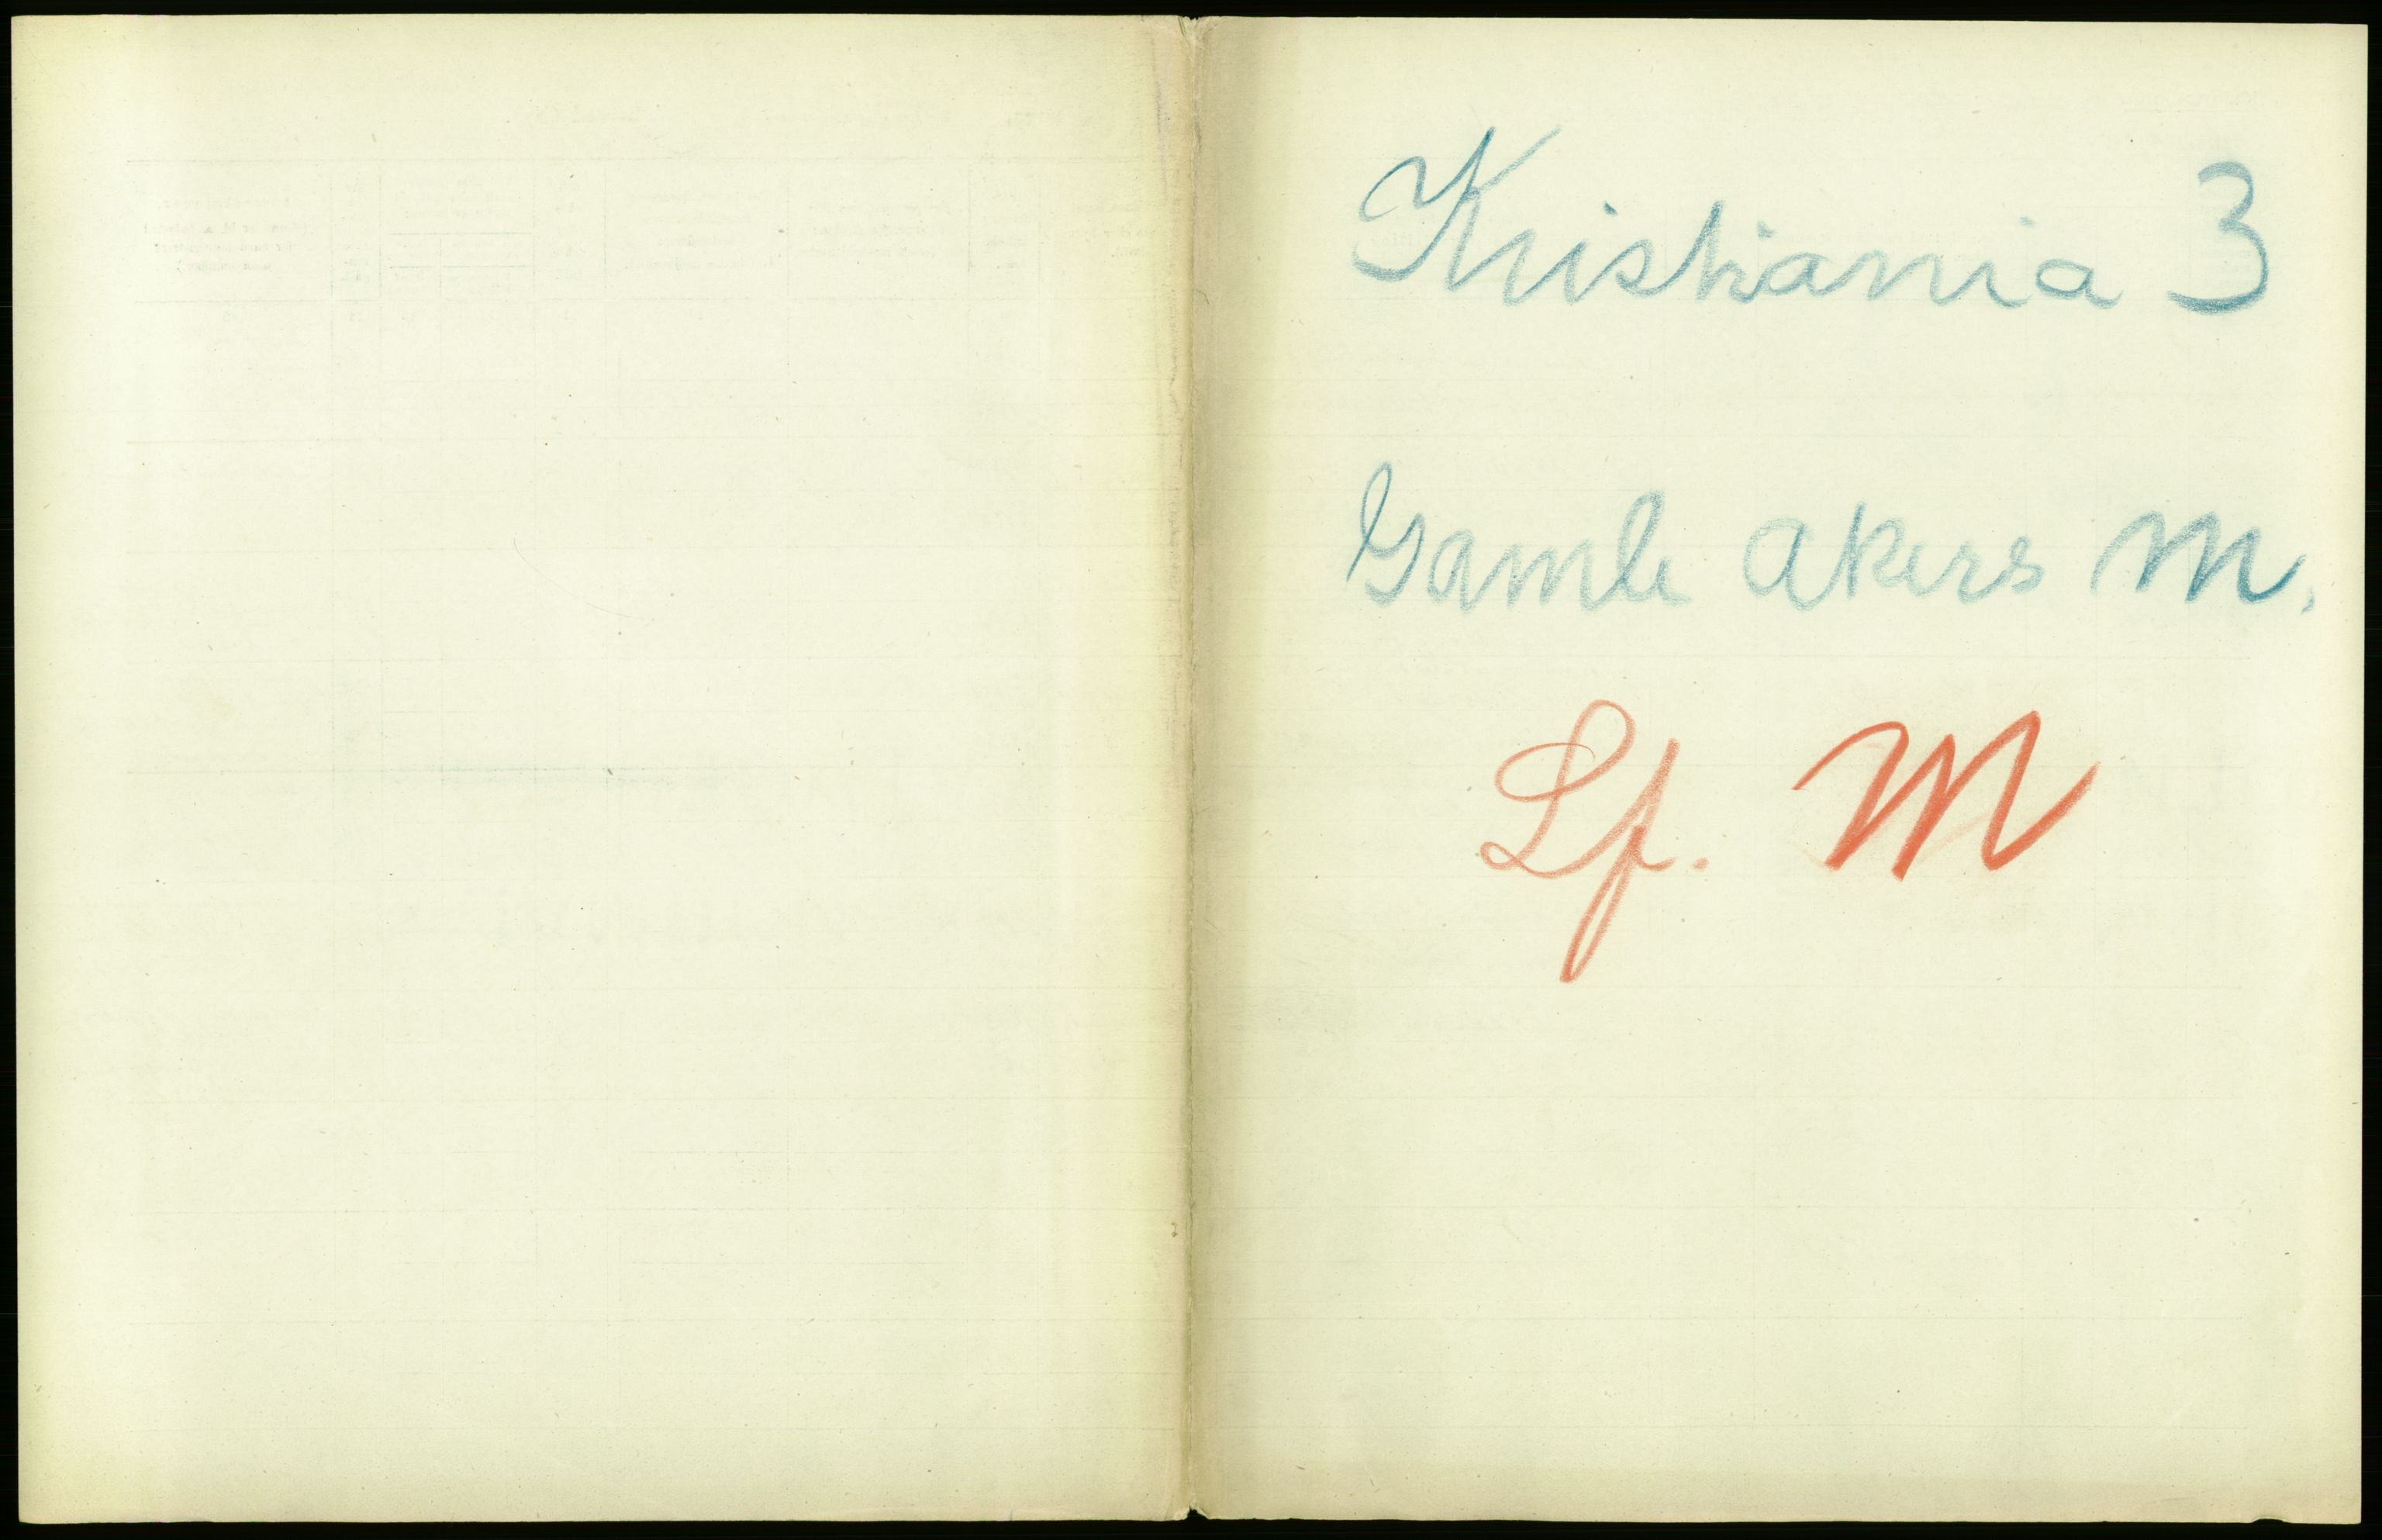 Kristiania 3
Gamle Akers M.
Lf. M